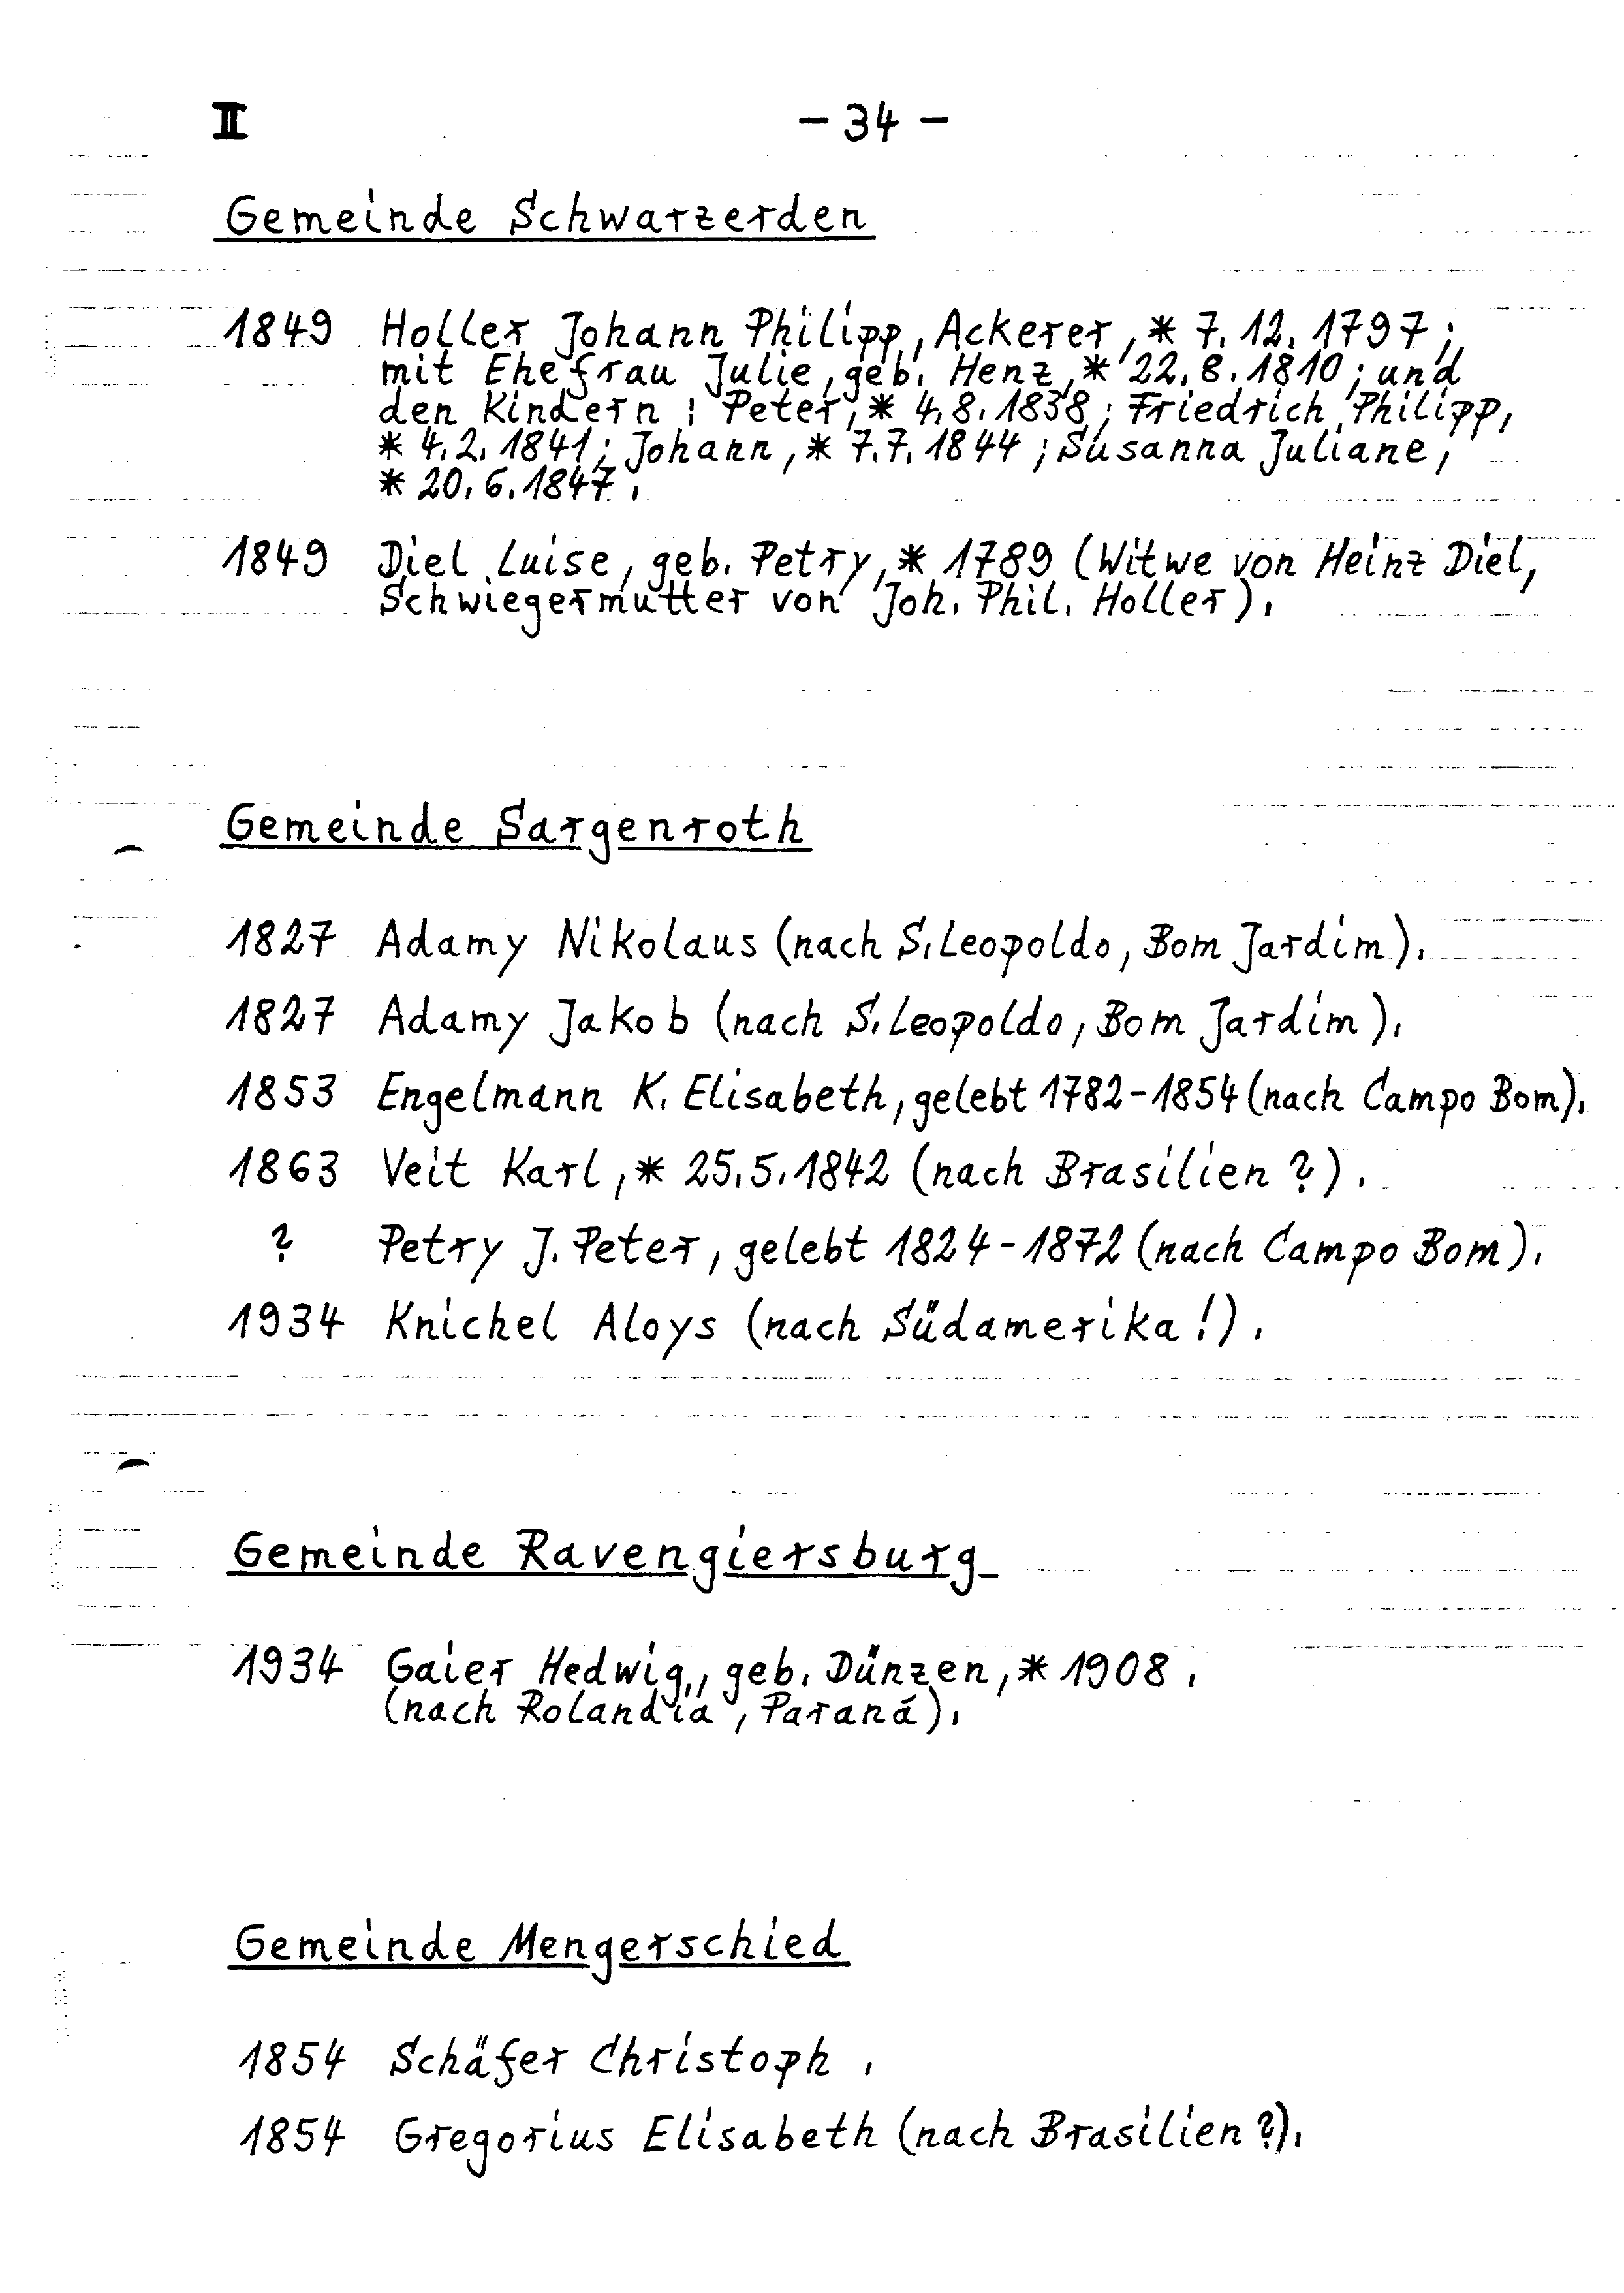 II
- 34 -
Gemeinde Schwarzerden
1849 Holler Johann Philipp, Ackerer, * 7.12.1797;
mit Ehefrau Julie, geb. Henz, * 22.8.1810; und
den Kindern: Peter, * 4.8.1838; Friedrich Philipp,
* 4.2.1841; Johann, * 7.7.1844; Susanna Juliane,
* 20.6.1847.
1849 Diel Luise, geb. Petry, * 1789 (Witwe von Heinz Diel,
Schwiegermutter von Joh. Phil. Holler).
Gemeinde Sargenroth
1827 Adamy Nikolaus (nach S.Leopoldo, Bom Jardim).
1827 Adamy Jakob (nach S.Leopoldo, Bom Jardim).
1853 Engelmann K. Elisabeth, gelebt 1782-1854 (nach Campo Bom).
1863 Veit Karl, * 25.5.1842 (nach Brasilien ?).
? Petry J. Peter, gelebt 1824-1872 (nach Campo Bom).
1934 Knichel Aloys (nach Südamerika!).
Gemeinde Ravengiersburg
1934 Gaier Hedwig, geb. Dünzen, * 1908.
(nach Rolandia, Paraná).
Gemeinde Mengerschied
1854 Schäfer Christoph.
1854 Gregorius Elisabeth (nach Brasilien ?).